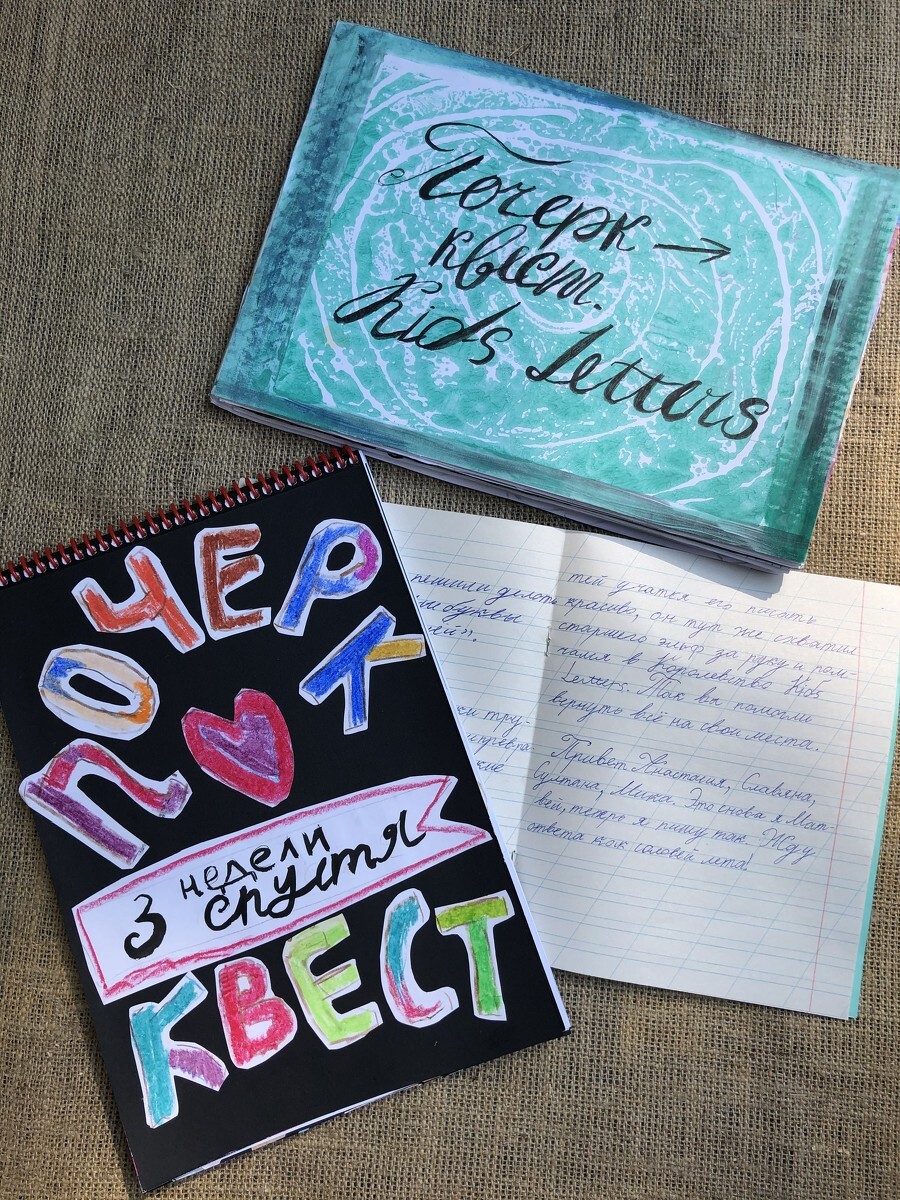 Почерк →
квест.
Kids Letters
ПОЧЕРК
3 недели
спустя
КВЕСТ
пешили делать
буквы
ей».
ки тру-
превра-
кие
тей учатся его писать
красиво, он тут же схватил
старшего эльфа за руку и пом-
чался в Королевство Kids
Letters. Так вы помогли
вернуть всё на свои места.
Привет Анастасия, Славяна,
Султана, Мика. Это снова я Мат-
вей, теперь я пишу так. Жду
ответа как соловей лета!